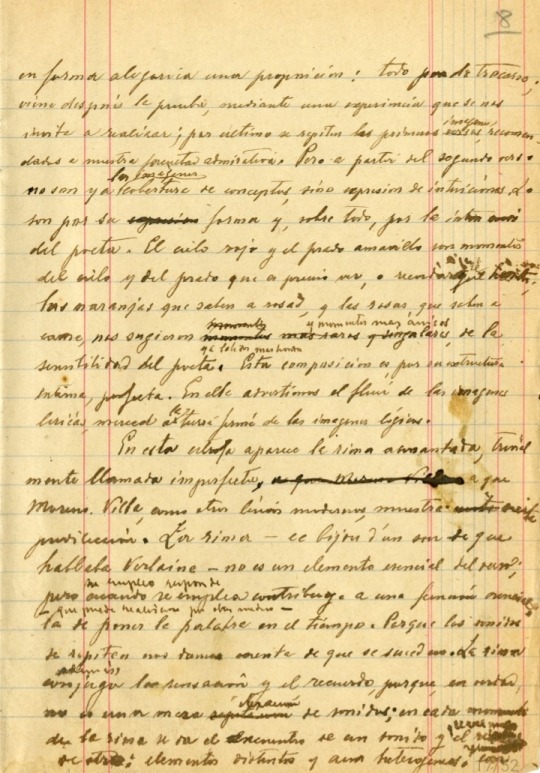 8
en forma alegórica una proposición: todo puede trocarse;
viene después la prueba, mediante una experiencia que se nos
invita a realizar; por último se repiten las primeras imágenes, recomen-
dadas a nuestra facultad admirativa. Pero a partir del segundo verso
las imágenes
no son ya cobertura de conceptos, sino expresión de intuiciones. Lo
son por su expresión forma y, sobre todo, por la
del poeta. El cielo rojo y el prado amarillo son momentos
del cielo y del prado que es preciso ver, o recordar
las naranjas que saben a rosas, y las rosas, que saben a
carne, nos sugieren momentos más raros y singulares, de la
y momentos más
sensibilidad del poeta. Esta composición es por su estructura
interna, perfecta. En ella advertimos el fluir de las imágenes
líricas, merced a la tierra firme de las imágenes lógicas.
En esta estrofa aparece la rima asonantada, trivial
mente llamada imperfecta, a que Moreno Villa a que
Moreno Villa, como otros líricos modernos, muestra cierta
predilección. La rima — ce bijou d'un sou de que
hablaba Verlaine — no es un elemento esencial del
su empleo responde
pero cuando se emplea contribuye a una función esencial
— que puede realizarse por otros medios —
la de poner la palabra en el tiempo. Porque los sonidos
se repiten nos damos cuenta de que se suceden. La rima
además
conjuga la sensación y el recuerdo, porque en verdad,
no es una mera repetición de sonidos; en cada momento
de la rima se da el encuentro de un sonido y el
de otro: elementos distintos y aun heterogéneos.